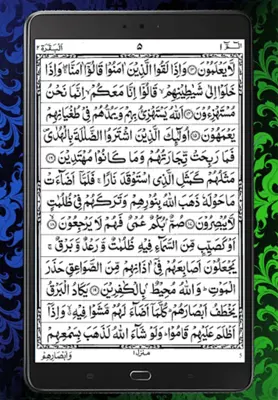 البقرة ٢ ٥ الٓمّٓ ١
لَا يَعْلَمُوْنَ ۝ وَاِذَا لَقُوا الَّذِيْنَ اٰمَنُوْا قَالُوْٓا اٰمَنَّا ۚ وَاِذَا
خَلَوْا اِلٰى شَيٰطِيْنِهِمْ ۙ قَالُوْٓا اِنَّا مَعَكُمْ ۙ اِنَّمَا نَحْنُ
مُسْتَهْزِءُوْنَ ۝ اَللّٰهُ يَسْتَهْزِئُ بِهِمْ وَيَمُدُّهُمْ فِيْ طُغْيَانِهِمْ
يَعْمَهُوْنَ ۝ اُولٰٓئِكَ الَّذِيْنَ اشْتَرَوُا الضَّلٰلَةَ بِالْهُدٰى
فَمَا رَبِحَتْ تِّجَارَتُهُمْ وَمَا كَانُوْا مُهْتَدِيْنَ ۝
مَثَلُهُمْ كَمَثَلِ الَّذِى اسْتَوْقَدَ نَارًا ۚ فَلَمَّآ اَضَآءَتْ
مَا حَوْلَهٗ ذَهَبَ اللّٰهُ بِنُوْرِهِمْ وَتَرَكَهُمْ فِيْ ظُلُمٰتٍ
لَّا يُبْصِرُوْنَ ۝ صُمٌّۢ بُكْمٌ عُمْيٌ فَهُمْ لَا يَرْجِعُوْنَ ۝
اَوْ كَصَيِّبٍ مِّنَ السَّمَآءِ فِيْهِ ظُلُمٰتٌ وَّرَعْدٌ وَّبَرْقٌ ۚ
يَجْعَلُوْنَ اَصَابِعَهُمْ فِيْٓ اٰذَانِهِمْ مِّنَ الصَّوَاعِقِ حَذَرَ
الْمَوْتِ ؕ وَاللّٰهُ مُحِيْطٌۢ بِالْكٰفِرِيْنَ ۝ يَكَادُ الْبَرْقُ
يَخْطَفُ اَبْصَارَهُمْ ؕ كُلَّمَآ اَضَآءَ لَهُمْ مَّشَوْا فِيْهِ ۙ وَاِذَآ
اَظْلَمَ عَلَيْهِمْ قَامُوْا ؕ وَلَوْ شَآءَ اللّٰهُ لَذَهَبَ بِسَمْعِهِمْ
وَاَبْصَارِهِمْ منزل ١